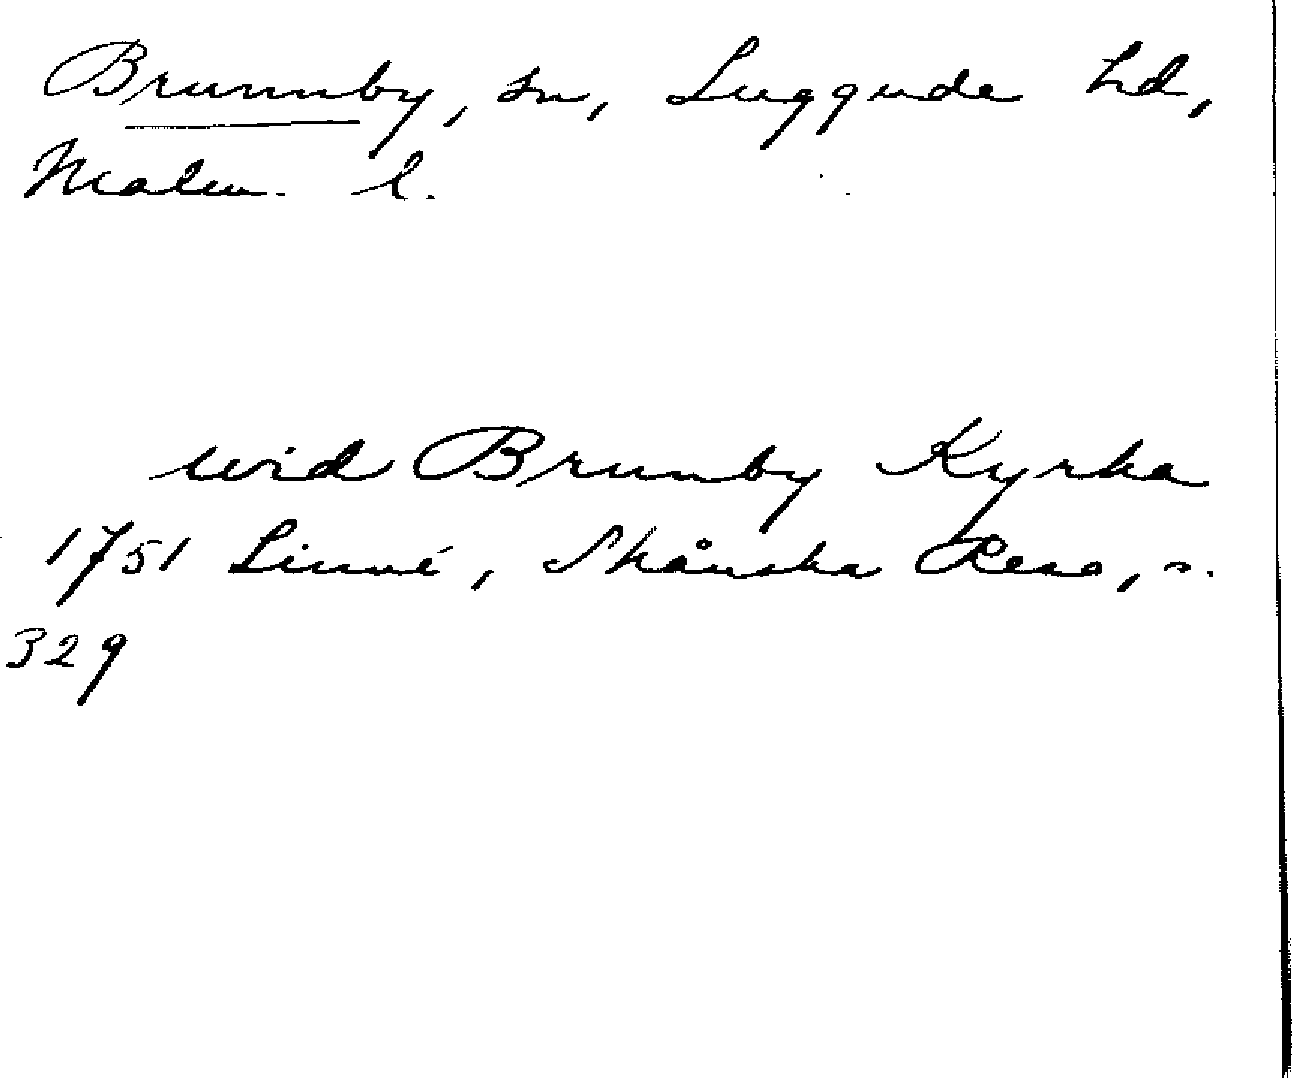 Brunnby, sn, Luggude hd,
Malm. l.
wid Brunby Kyrka
1751 Linné, Skånska Resa, s.
329